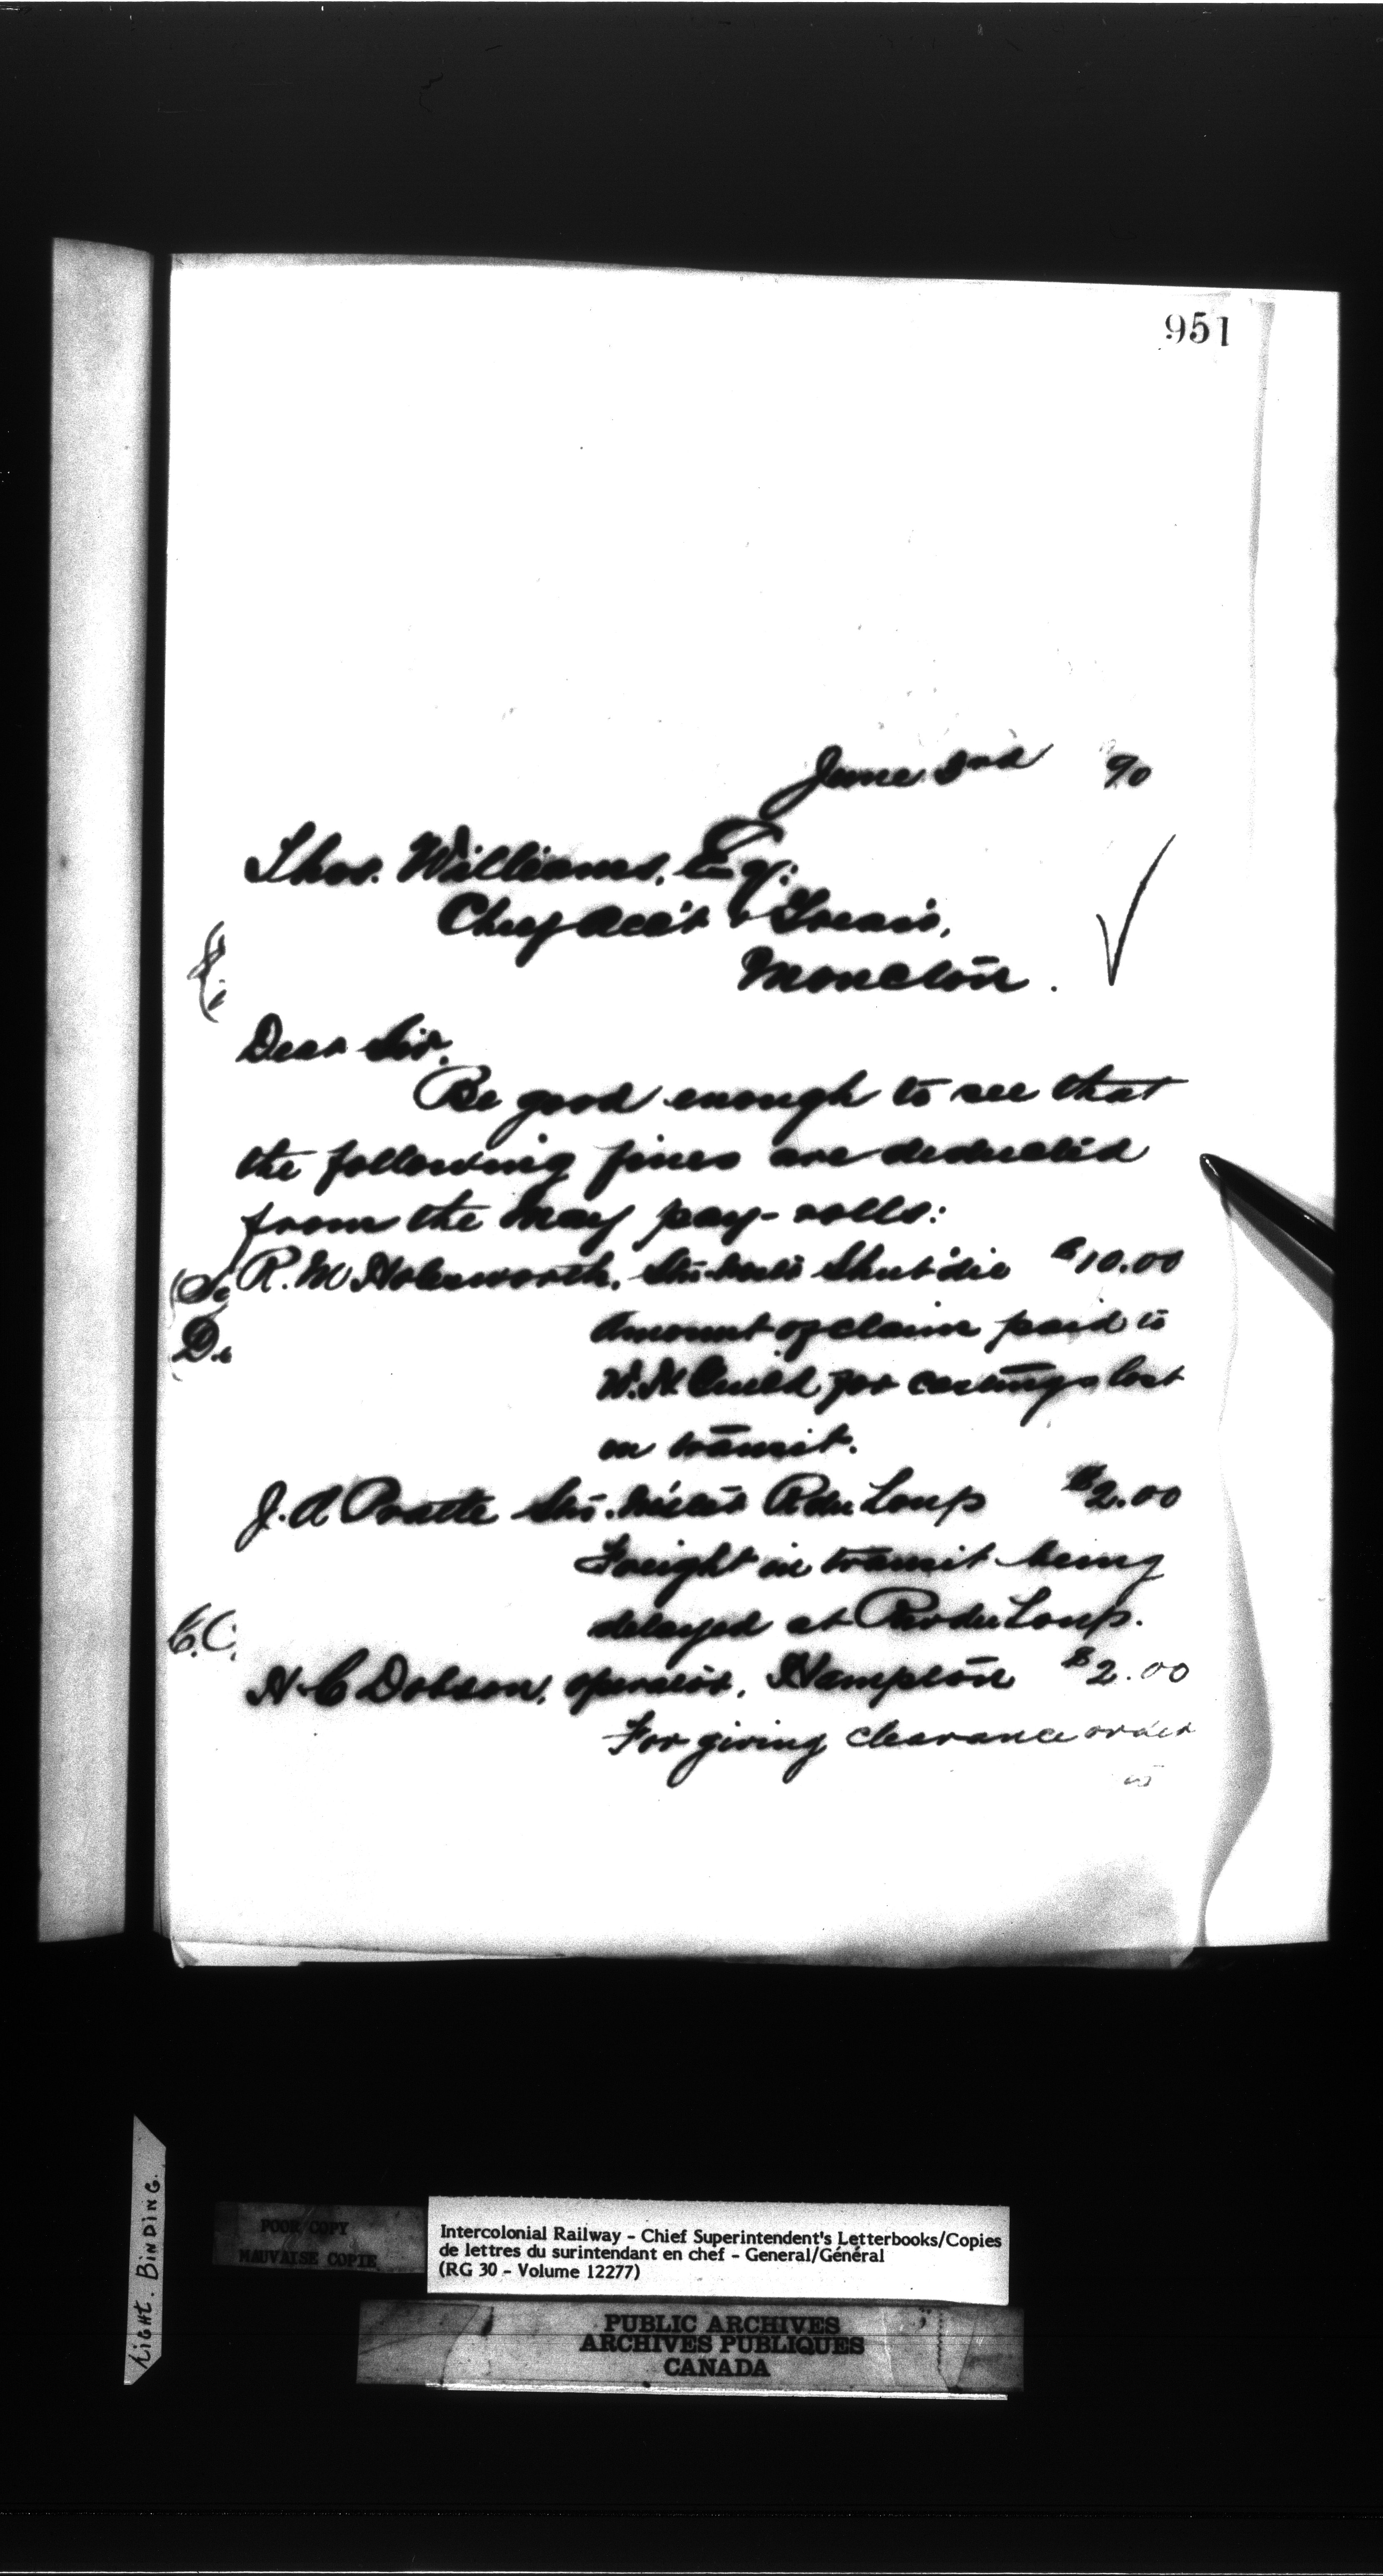 951
June 3rd 90
Thos. Williams, Esq.
Chief Acc't & Treas'r,
Moncton.
Dear Sir,
Be good enough to see that
the following fines are deducted
from the May pay-rolls:
R. M Holesworth, Shed-dis $10.00
Amount of claim paid to
W. H. for castings lost
in transit.
J. A Pratte R du Loup $2.00
Freight in transit being
delayed at Riv du Loup.
C.C.
H C Dobson, operator, Hampton $2.00
For giving clearance order
LIGHT. BINDING.
POOR COPY
MAUVAISE COPIE
Intercolonial Railway - Chief Superintendent's Letterbooks/Copies
de lettres du surintendant en chef - General/Général
(RG 30 - Volume 12277)
PUBLIC ARCHIVES
ARCHIVES PUBLIQUES
CANADA